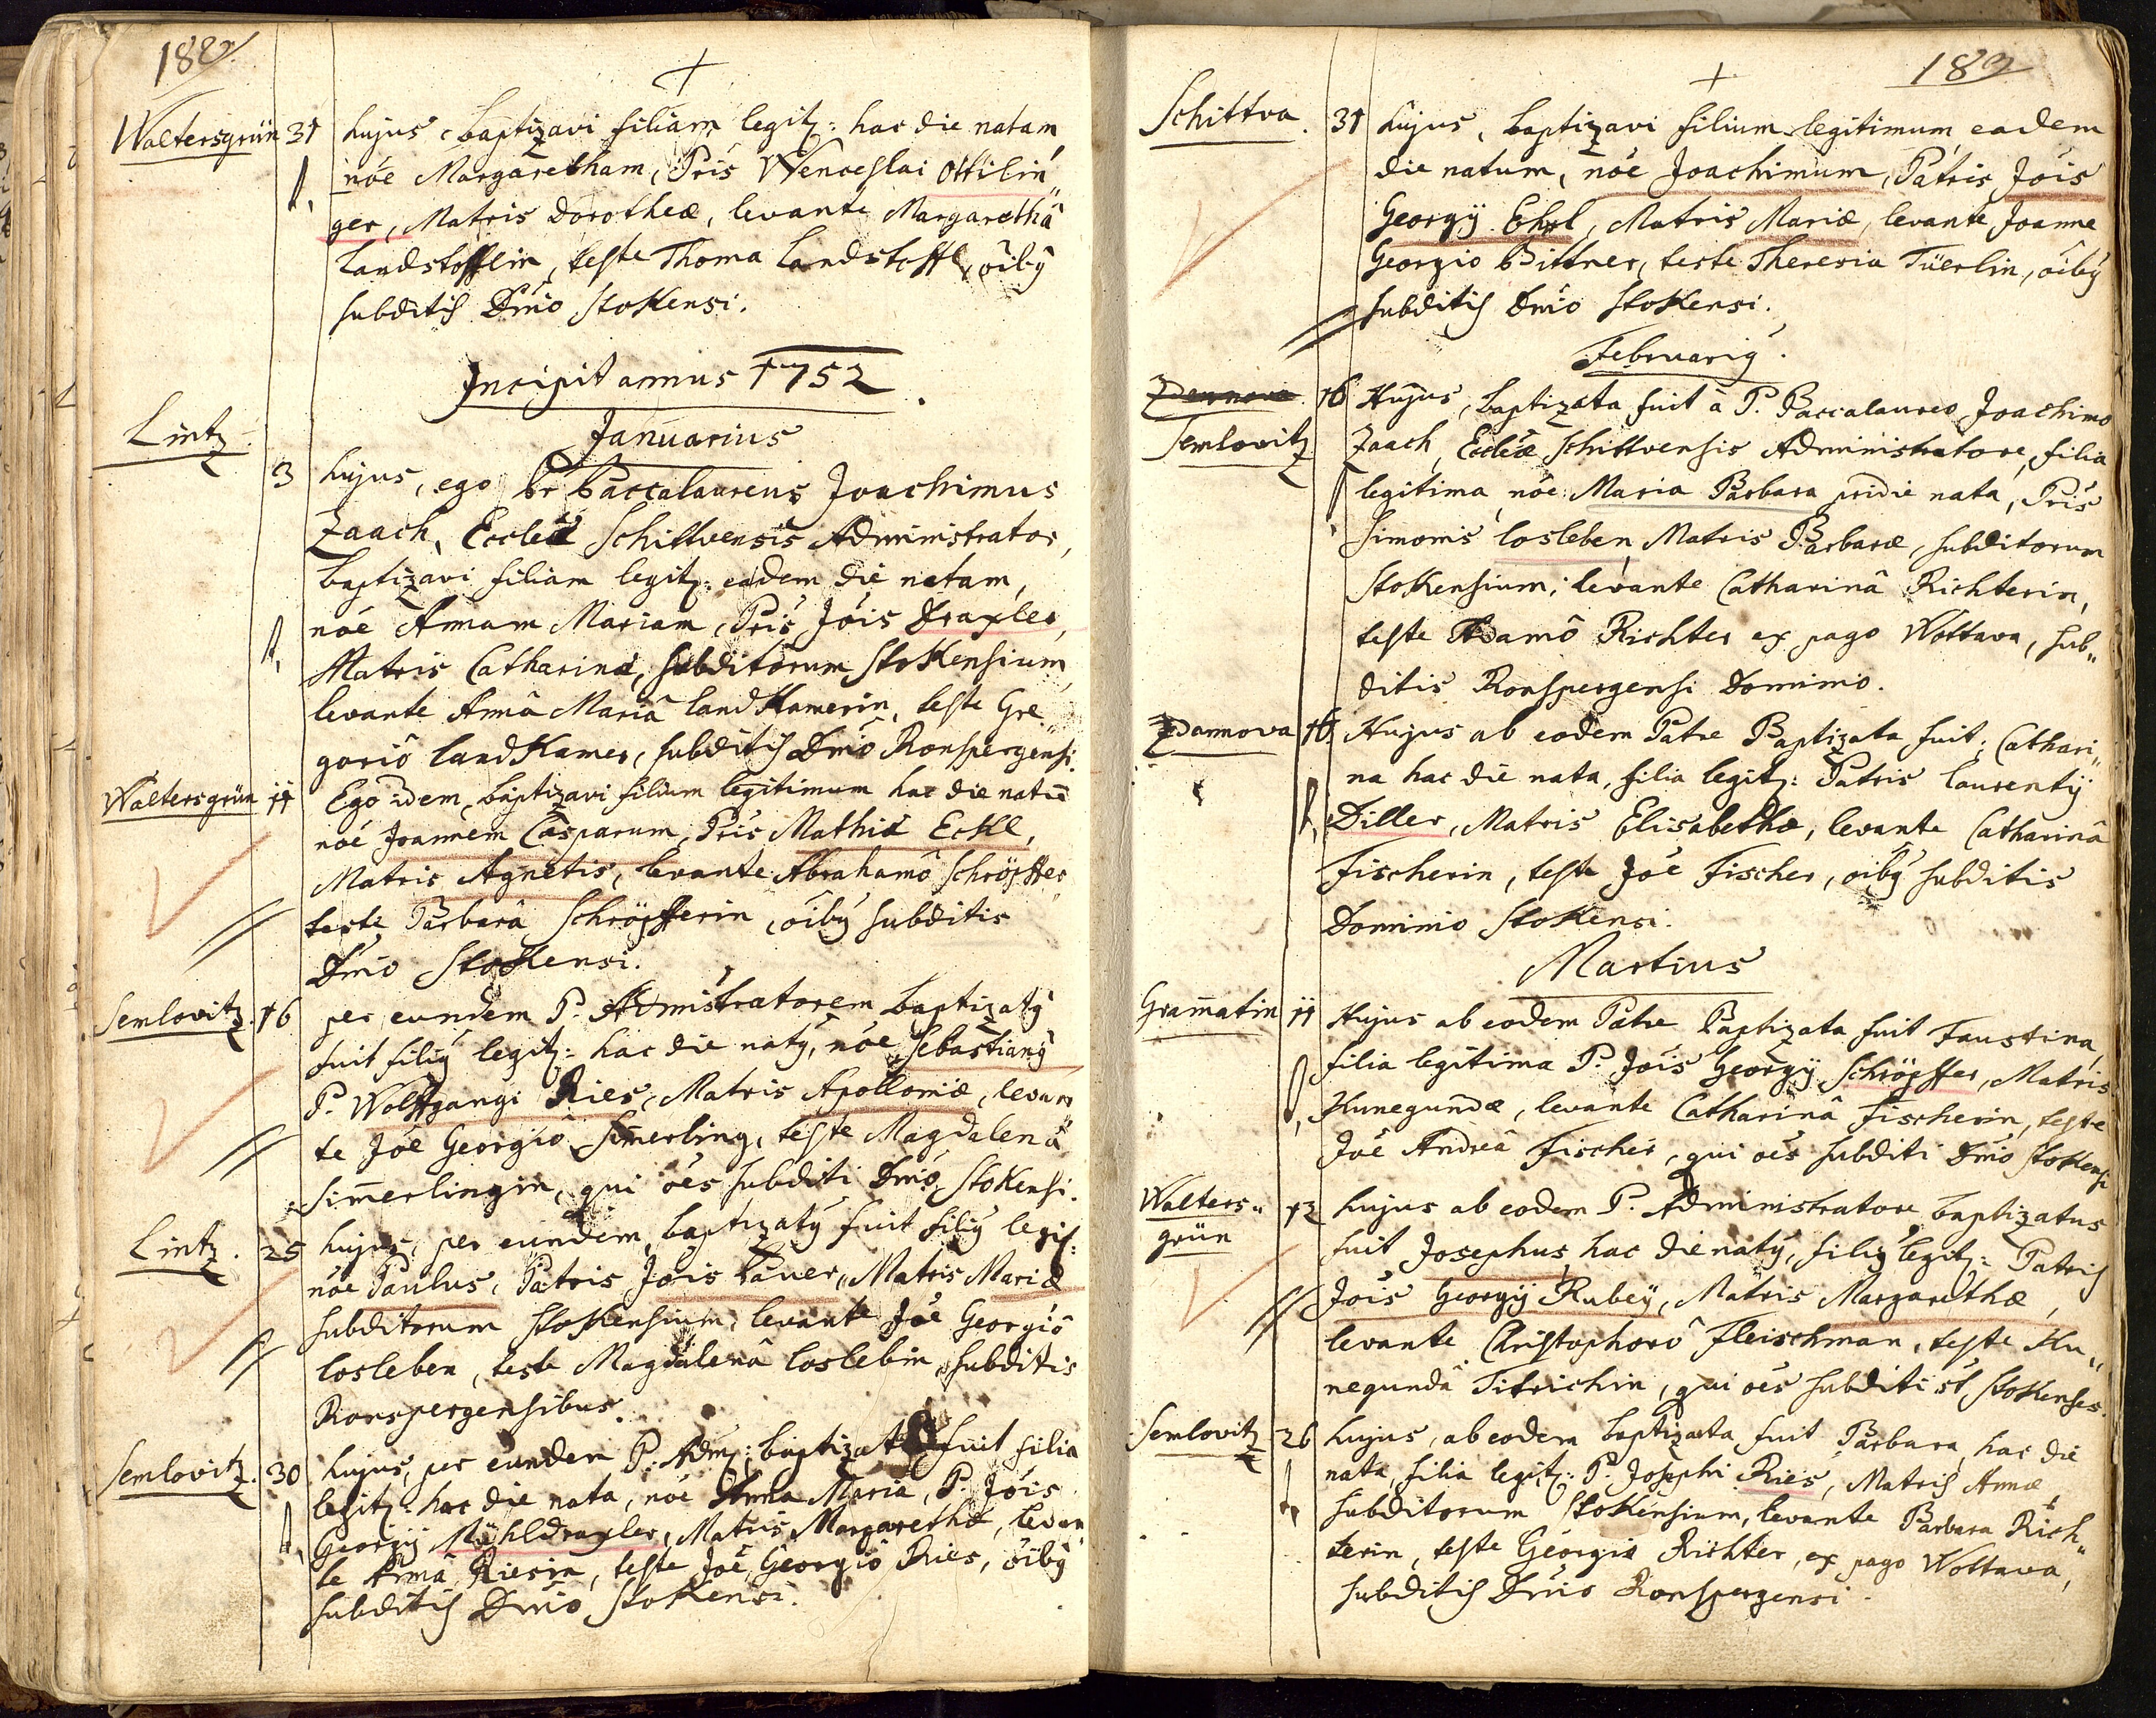 182
Waltersgrün 31 hujus baptizavi filiam legitz: hac die natam,
nöe Margaretham, Pris Wenceslai Ottilin„
ger, Matris Dorotheæ, levante Margarethâ
Landstofflin, teste Thoma Landstoffl, öibꝰ
subditis Dnio Stokensi.
Incipit annus 1752.
Januarius
Lintz. 3 hujus, ego Br Baccalaureus Joachimus
Zaach, Eccleæ Schittvensis Administrator,
baptizavi filiam legitz: eadem die natam,
nöe Annam Mariam, Pris Jois Draxler,
Matris Catharinæ, subditorum Stokensium,
levante Annâ Mariâ Landkamerin, teste Gre„
gorio Landkamer, subditis Dnio Ronspergensi.
Waltersgrün 11 Ego idem baptizavi filium legitimum hac die natū
nöe Joannem Casparum, Pris Mathiæ Eckl,
Matris Agnetis, levante Abrahamô Schröpffer
teste Barbarâ Schröpfferin, öibꝰ subditis
Dnio Stokensi.
Semlovitz. 16 per eundem P. Admistratorem baptizatꝰ
fuit filiꝰ legitz: hac die natꝰ, nöe Sebastianꝰ
P. Wolffgangi Ries, Matris Apolloniæ, levan„
te Jöe Georgio Simerling, teste Magdalenâ
Simerlingin, qui öes subditi Dnio Stokensi.
Lintz. 25 hujus, per eundem baptizatꝰ fuit filiꝰ legit:
nöe Paulus, Patris Jois Bauer, Matris Mariæ
subditorum Stokensium, levante Jöe Georgiô
Losleben, teste Magdalenâ Loslebin, subditis
Ronspergensibus.
Semlovitz. 30 hujus, per eundem P. Adm: baptizata fuit filia
legitz: hac die nata, nöe Anna Maria, P. Jois
Georgÿ Mühldraxler, Matris Margarethæ, levan„
te Annâ Riesin, teste Jöe Georgiô Ries, öibꝰ
subditis Dnio Stokensi.
183
Schittva. 31 hujus, baptizavi filium legitimum eadem
die natum, nöe Joachimum, Patris Jois
Georgÿ Ehrl, Matris Mariæ, levante Joanne
Georgio Bittner, teste Theresia Tüerlin, öibꝰ
subditis Dnio Stokensi.
Februariꝰ.
Zdannova. 16 Hujus, baptizata fuit à P. Baccalaureo Joachimo
Semlovitz Zaach, Eccleæ Schittvensis Administratore, filia
legitima nöe Maria Barbara pridie nata, Pris
Simonis Losleben, Matris Barbaræ, subditorum
Stokensium; levante Catharinâ Richterin,
teste Adamô Richter ex pago Wottawa, sub„
ditis Ronspergensi Dominio.
Zdannova 16 Hujus ab eodem Patre Baptizata fuit, Cathari„
na hac die nata, filia legitz: Patris Laurentÿ
Diller, Matris Elisabethæ, levante Catharinâ
Fischerin, teste Jöe Fischer, öibꝰ subditis
Dominio Stokensi.
Martius
Gram̄atin 11 Hujus ab eodem Patre Baptizata fuit Faustina,
filia legitima P. Jois Georgÿ Schröpffer, Matris
Kunegundæ, levante Catharinâ Fischerin, teste
Jöe Andreâ Fischer, qui öes subditi Dnio Stokensi
Walters„ 12 hujus ab eodem P. Administratore baptizatus
grün fuit Josephus, hac die natꝰ, filiꝰ legitz: Patris
Jois Georgÿ Rubeÿ, Matris Margarethæ,
levante Christophorô Fleischman, teste Ku„
negundâ Titrichin, qui öes subditi st Stokenses.
Semlovitz 26 hujus, ab eodem baptizata fuit Barbara, hac die
nata, filia legitz: P. Josephi Ries, Matris Annæ,
subditorum Stokensium, levante Barbara Rich„
terin, teste Georgio Richter, ex pago Wottawa,
subditis Dnio Ronspergensi.